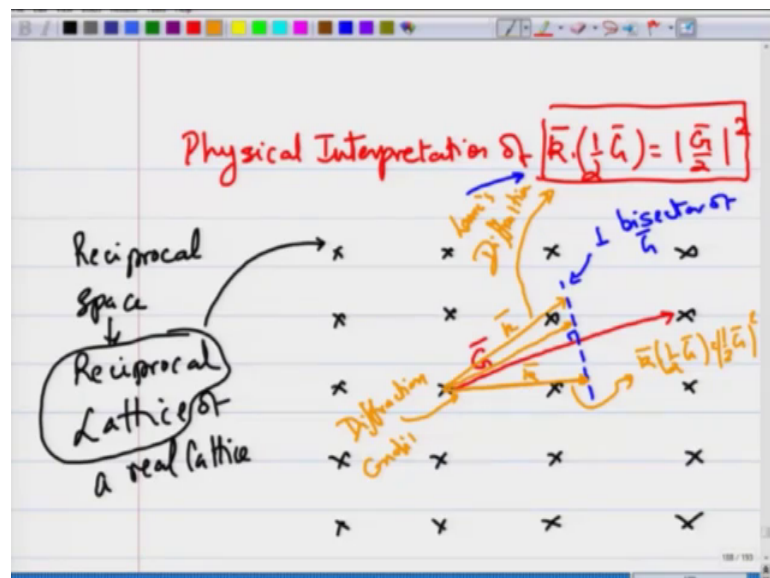 Physical Interpretation of k̄·(½ Ḡ) = |Ḡ/2|²
Laue's
Diffraction
⊥ bisector of
Ḡ
Reciprocal
space
Reciprocal
Lattice of
a real lattice
k̄
Ḡ
k̄
k̄(½ Ḡ) = |½ Ḡ|²
Diffraction
188 / 193